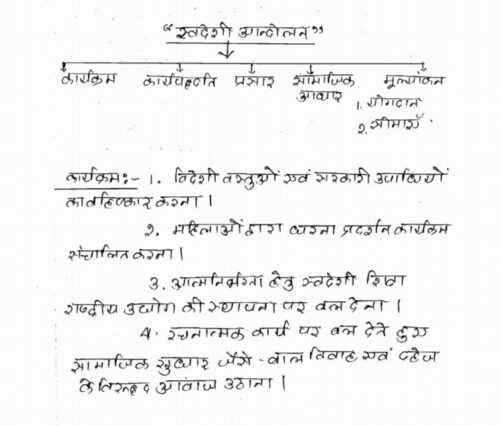 "स्वदेशी आन्दोलन"
कार्यक्रम कार्यपद्धति प्रसार सामाजिक आधार मूल्यांकन
1. योगदान
2. सीमाएँ
कार्यक्रम:- 1. विदेशी वस्तुओं एवं सरकारी उपाधियों
का बहिष्कार करना।
2. महिलाओं द्वारा धरना प्रदर्शन कार्यक्रम
संचालित करना।
3. आत्मनिर्भरता हेतु स्वदेशी शिक्षा
राष्ट्रीय उद्योग की स्थापना पर बल देना।
4. रचनात्मक कार्य पर बल देते हुए
सामाजिक सुधार जैसे - बाल विवाह एवं दहेज
के विरूद्ध आवाज उठाना।